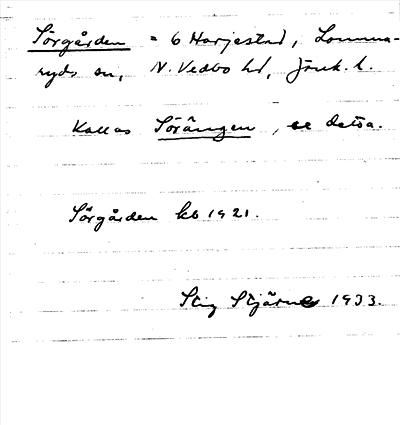 Sörgården = 6 Harjestad, Lomma-
ryds sn, N. Vedbo hd, Jönk. l.
Kallas Sörängen, se detta.
Sörgården kb 1921.
Stig Stjärne 1933.